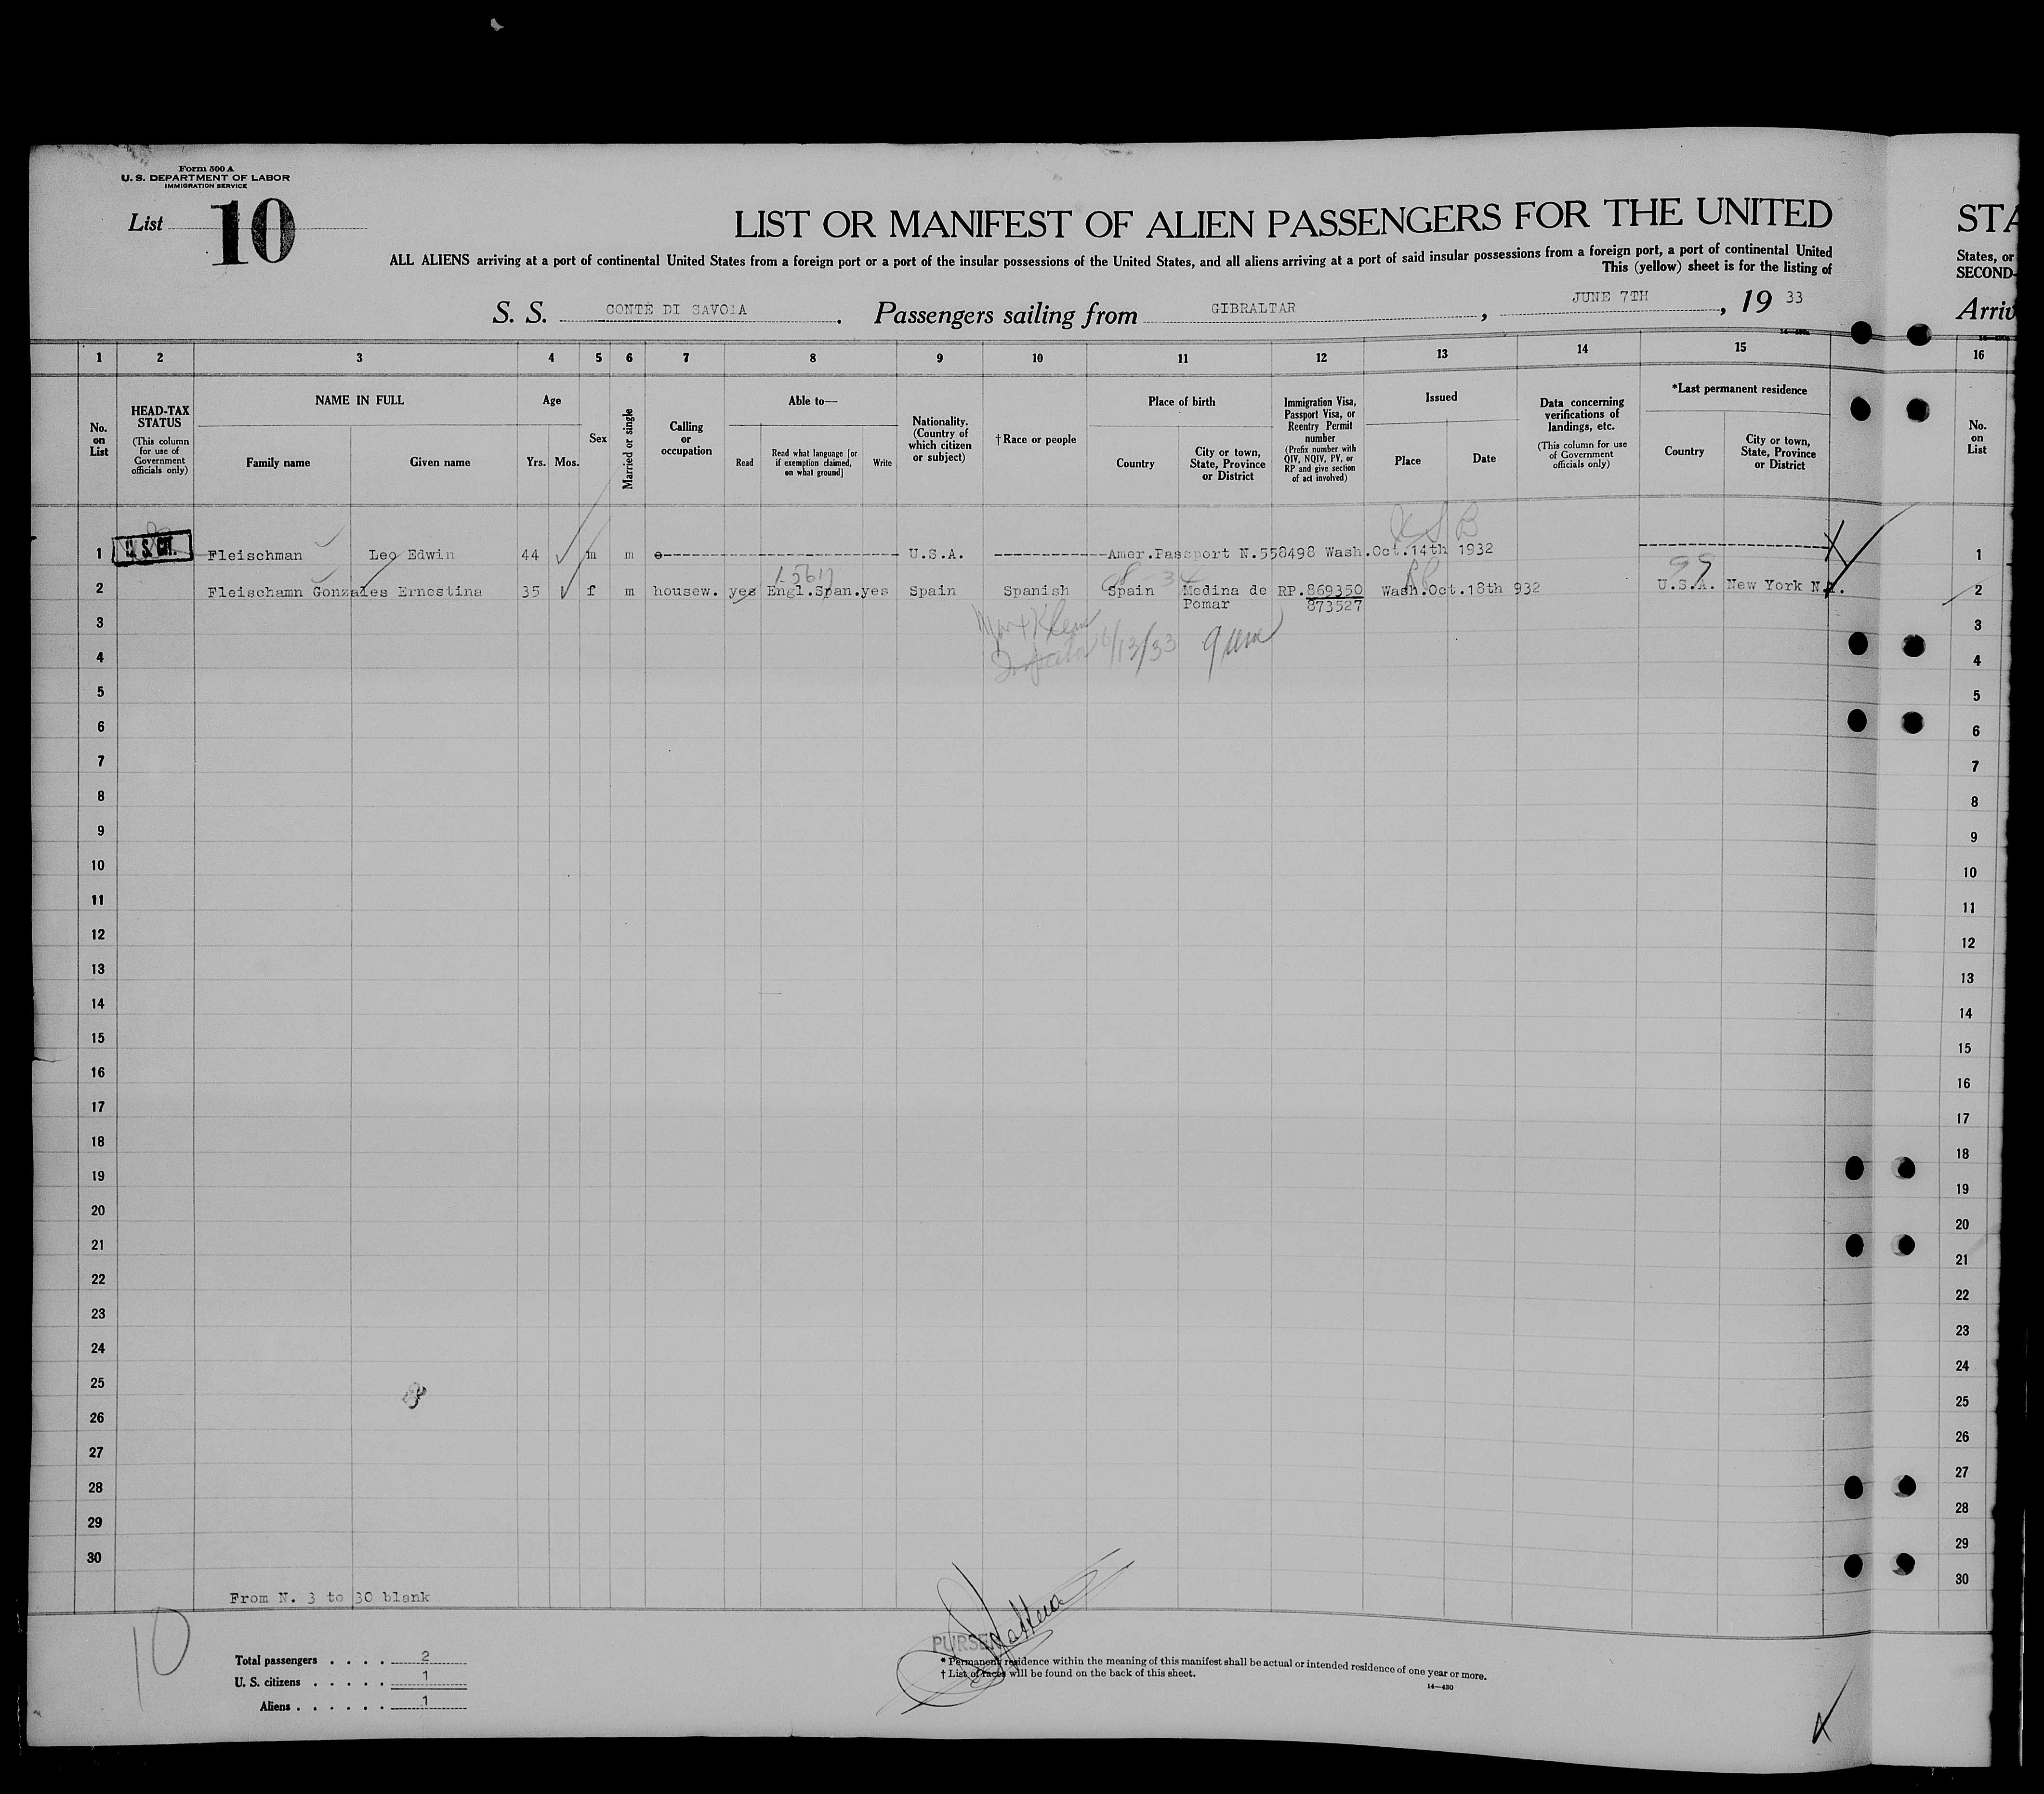 Form 500 A
U. S. DEPARTMENT OF LABOR
IMMIGRATION SERVICE
List 10
LIST OR MANIFEST OF ALIEN PASSENGERS FOR THE UNITED
STA
ALL ALIENS arriving at a port of continental United States from a foreign port or a port of the insular possessions of the United States, and all aliens arriving at a port of said insular possessions from a foreign port, a port of continental United
States, or
This (yellow) sheet is for the listing of
SECOND-
S. S. CONTE DI SAVOIA. Passengers sailing from GIBRALTAR, JUNE 7TH, 19 33
Arriv
1 2 3 4 5 6 7 8 9 10 11 12 13 14 15 16
No. on List
HEAD-TAX STATUS
(This column for use of Government officials only)
NAME IN FULL
Family name Given name
Age
Yrs. Mos.
Sex
Married or single
Calling or occupation
Able to—
Read
Read what language [or if exemption claimed, on what ground]
Write
Nationality. (Country of which citizen or subject)
†Race or people
Place of birth
Country
City or town, State, Province or District
Immigration Visa, Passport Visa, or Reentry Permit number
(Prefix number with QIV, NQIV, PV, or RP and give section of act involved)
Issued
Place Date
Data concerning verifications of landings, etc.
(This column for use of Government officials only)
*Last permanent residence
Country
City or town, State, Province or District
No. on List
U S B
1 U. S. CIT. Fleischman Leo Edwin 44 m m U.S.A. Amer.Passport N.558498 Wash.Oct.14th 1932 1
99
RP
2 Fleischamn Gonzales Ernestina 35 f m housew. yes Engl.Span.yes Spain Spanish Spain Medina de Pomar RP.869350 873527 Wash.Oct.18th 932 U.S.A. New York N.Y. 2
3 3
6/13/33
4 4
5 5
6 6
7 7
8 8
9 9
10 10
11 11
12 12
13 13
14 14
15 15
16 16
17 17
18 18
19 19
20 20
21 21
22 22
23 23
24 24
25 25
26 26
27 27
28 28
29 29
30 30
From N. 3 to 30 blank
10
Total passengers . . . . 2
U. S. citizens . . . . . 1
Aliens . . . . . . 1
PURSER
* Permanent residence within the meaning of this manifest shall be actual or intended residence of one year or more.
† List of races will be found on the back of this sheet.
14—430